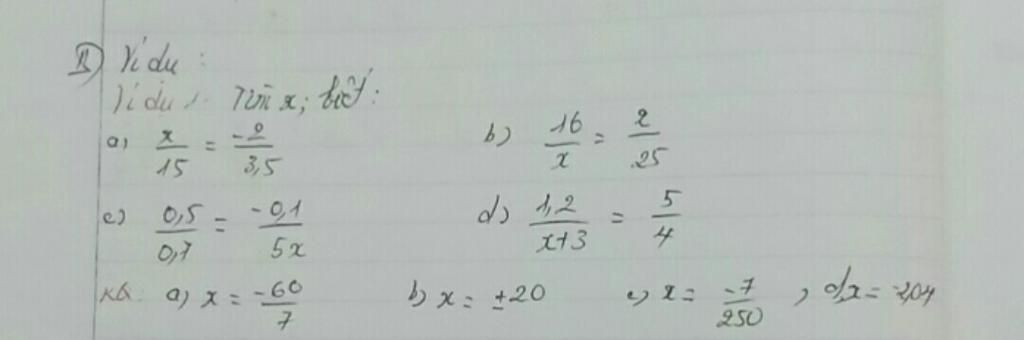 II) Ví dụ :
Ví dụ 1. Tìm x; biết :
a) x/15 = -2/3,5 b) 16/x = x/25
c) 0,5/0,7 = -0,1/5x d) 1,2/x+3 = 5/4
KQ: a) x = -60/7 b) x = ±20 c) x = -7/250 , d) x = -2,04